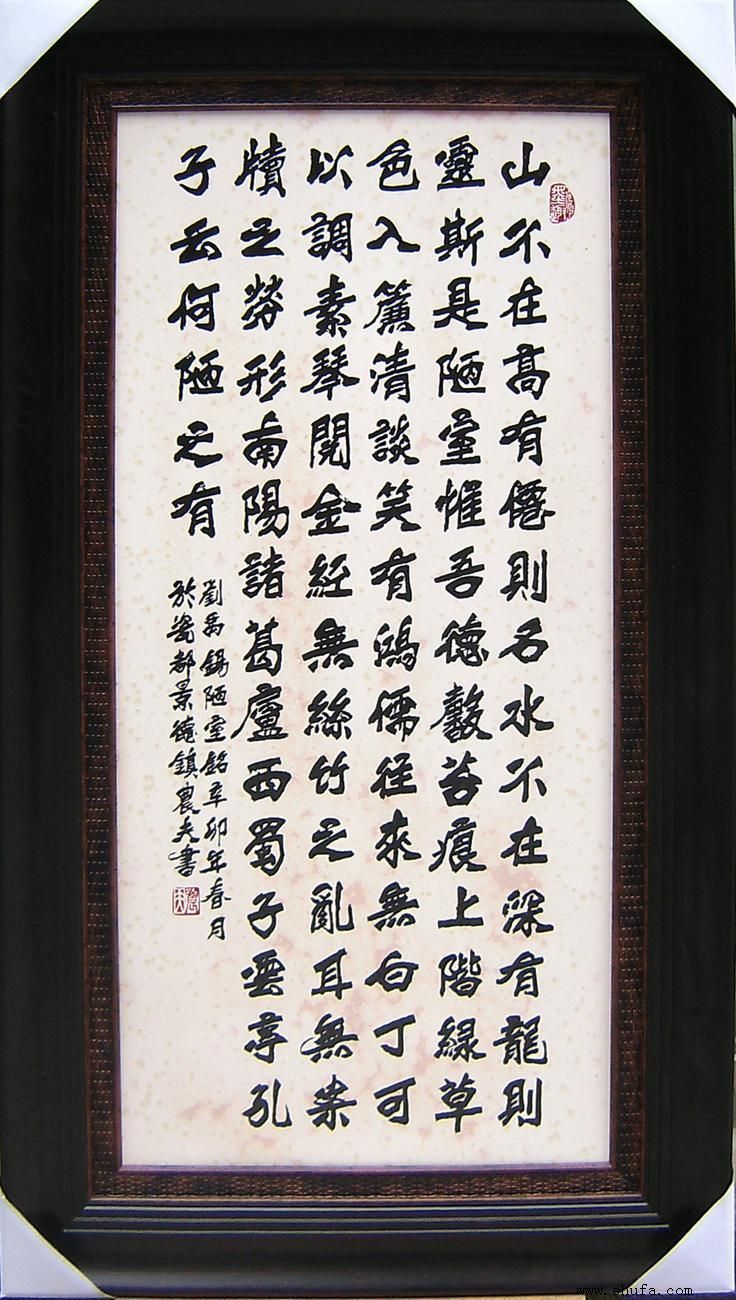 山不在高有僊則名水不在深有龍則
靈斯是陋室惟吾德馨苔痕上階緑草
色入簾清談笑有鴻儒往來無白丁可
以調素琴閱金經無絲竹之亂耳無案
牘之勞形南陽諸葛廬西蜀子雲亭孔
子云何陋之有
劉禹錫陋室銘辛卯年春月
於瓷都景德鎮農夫書
www.shufa.com